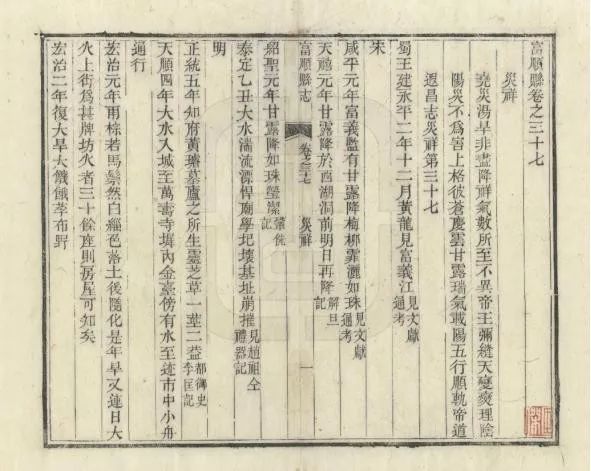 富順縣卷之三十七
災祥
堯災湯旱非盡降祥氣數所至不異帝王彌縫天變爕理陰
陽災不爲害上格彼蒼慶雲甘露瑞氣載陽五行順軌帝道
遐昌志災祥第三十七
蜀王建永平二年十二月黃龍見富義江見文獻通考
宋
咸平元年富義監有甘露降梅柳霏灑如珠見文獻通考
天禧元年甘露降於西湖洞前明日再降解旦記
富順縣志 卷之三七 災祥 一
紹聖元年甘露降如珠瑩潔記
泰定乙丑大水湍流漂悍廟學圮壞基址崩摧見趙祖仝禮器記
明
正統五年知府黃墓廬之所生靈芝草一莖二葢都御史李匡記
天順四年大水入城至萬壽寺墀內金臺傍有水至迹市中小舟
通行
宏治元年雨棕若馬鬃然白緇色落土後隨化是年旱又連日大
火上街爲甚牌坊火者三十餘座則房屋可知矣
宏治二年復大旱大饑餓莩布野